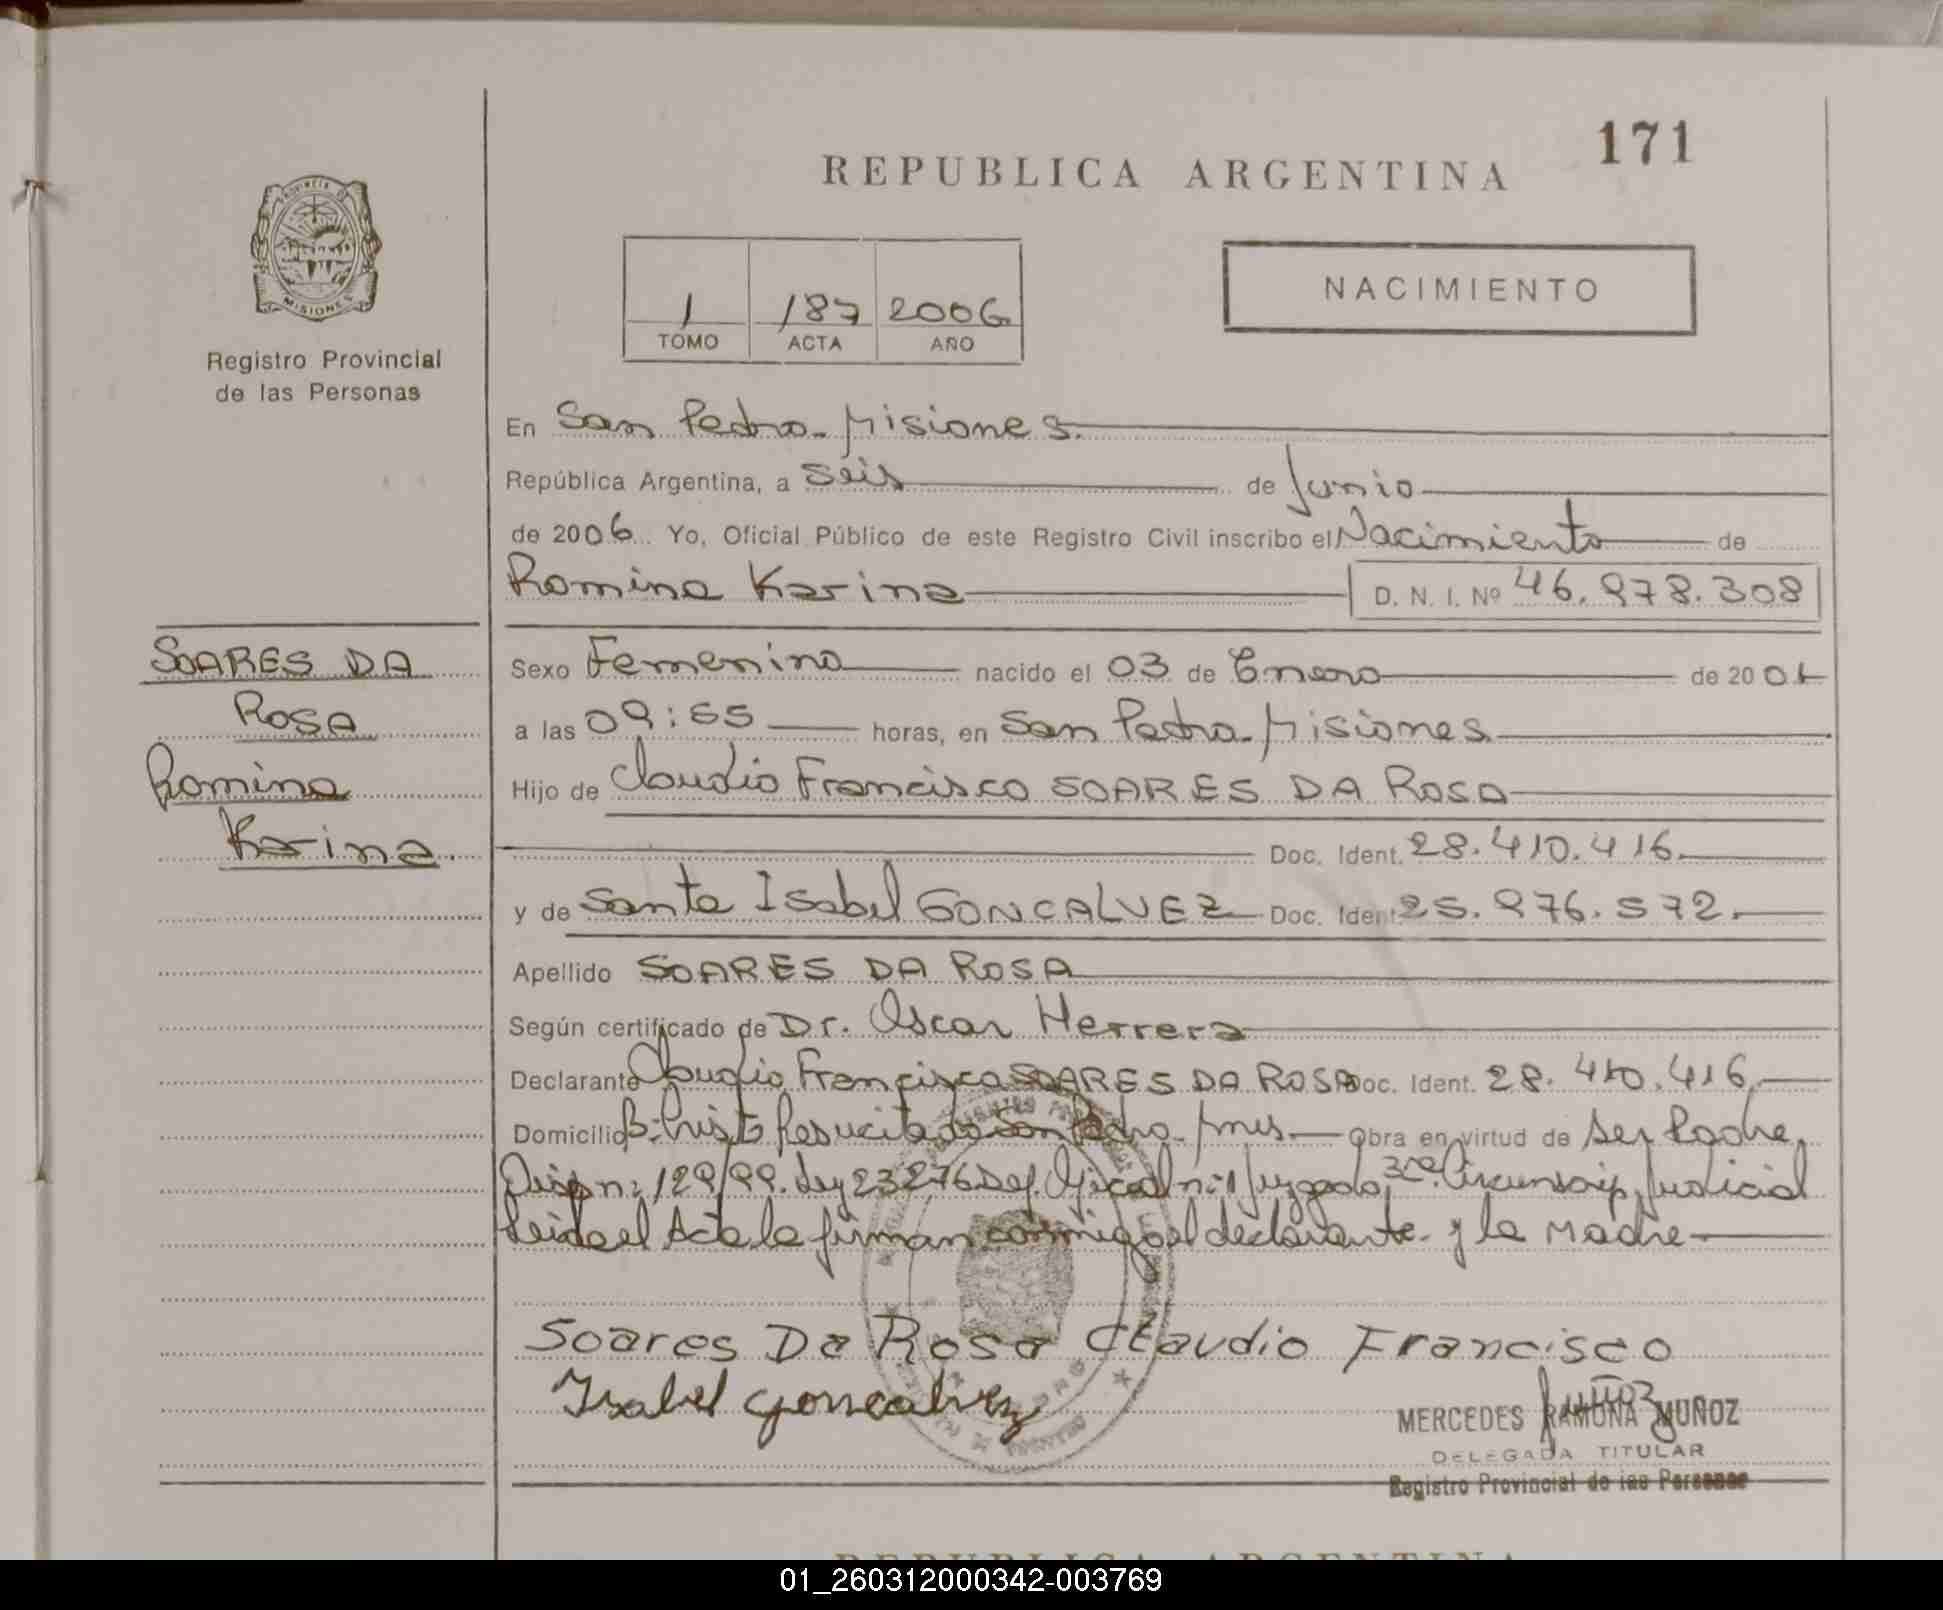 171
REPUBLICA ARGENTINA
PROVINCIA DE
MISIONES
Registro Provincial
de las Personas
1 187 2006
TOMO ACTA AÑO
NACIMIENTO
En San Pedro - Misiones.
República Argentina, a Seis de Junio
de 2006. Yo, Oficial Público de este Registro Civil inscribo el Nacimiento de
Romina Karina D. N. I. Nº 46.978.308
SOARES DA
Rosa
Romina
Karina
Sexo Femenino nacido el 03 de Enero de 20
a las 09:55 horas, en San Pedro - Misiones
Hijo de Claudio Francisco SOARES DA ROSA
Doc. Ident. 28.410.416.
y de Santa Isabel GONCALVEZ Doc. Ident. 25.976.572.
Apellido SOARES DA ROSA
Según certificado de Dr. Oscar Herrera
Declarante Claudio Francisco SOARES DA ROSA Doc. Ident. 28.410.416.
Domicilio Bº Cristo Resucitado San Pedro - Mnes Obra en virtud de Ser Padre,
Disp nº 129/99. Ley 23276 Def. Oficial nº 1 Juzgado 3ra. Circunscrip. Judicial
Leida el Acta la firman conmigo el declarante y la Madre
Soares Da Rosa Claudio Francisco
Isabel Goncalvez
MERCEDES RAMONA MUÑOZ
DELEGADA TITULAR
Registro Provincial de las Personas
REPUBLICA ARGENTINA
01_260312000342-003769